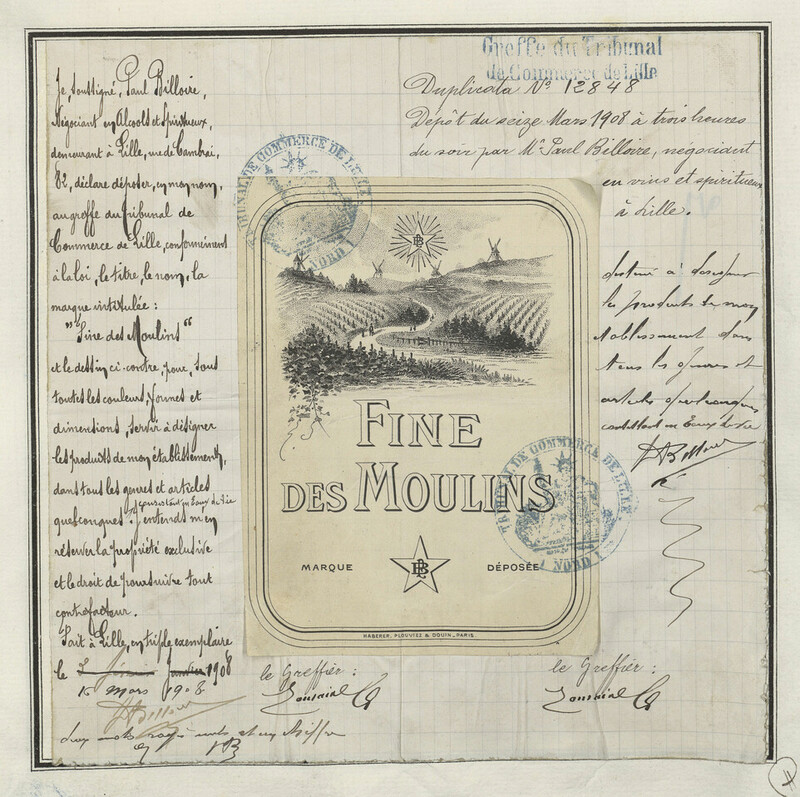 Greffe du Tribunal
de Commerce de Lille
Duplicata No 12848
Dépôt du seize Mars 1908 à trois heures
du soir par Mr Paul Billoire, négociant
en vins et spiritueux
à Lille.
Je, soussigné, Paul Billoire,
Négociant en Alcools et Spiritueux,
demeurant à Lille, rue de Cambrai,
82, déclare déposer, en mon nom,
au greffe du Tribunal de
Commerce de Lille, conformément
à la loi, le titre, le nom, la
marque intitulée :
"Fine des Moulins"
et le dessin ci-contre, pour, sous
toutes les couleurs, formes et
dimensions, servir à désigner
les produits de mon établissement,
dans tous les genres et articles
consistant en Eaux de Vie
quelconques. J'entends m'en
réserver la propriété exclusive
et le droit de poursuivre tout
contrefacteur.
Fait à Lille, en triple exemplaire
le Janvier 1908
16 mars 1908
PBilloire
deux mots rayés nuls et un chiffre
PB
TRIBUNAL DE COMMERCE DE LILLE
NORD
FINE
DES MOULINS
MARQUE DÉPOSÉE
HABERER, PLOUVIEZ & DOUIN_PARIS
TRIBUNAL DE COMMERCE DE LILLE
NORD
destiné à désigner
les produits de mon
établissement dans
tous les genres et
articles quelconques
consistant en Eaux de Vie
PBilloire
le Greffier :
le Greffier :